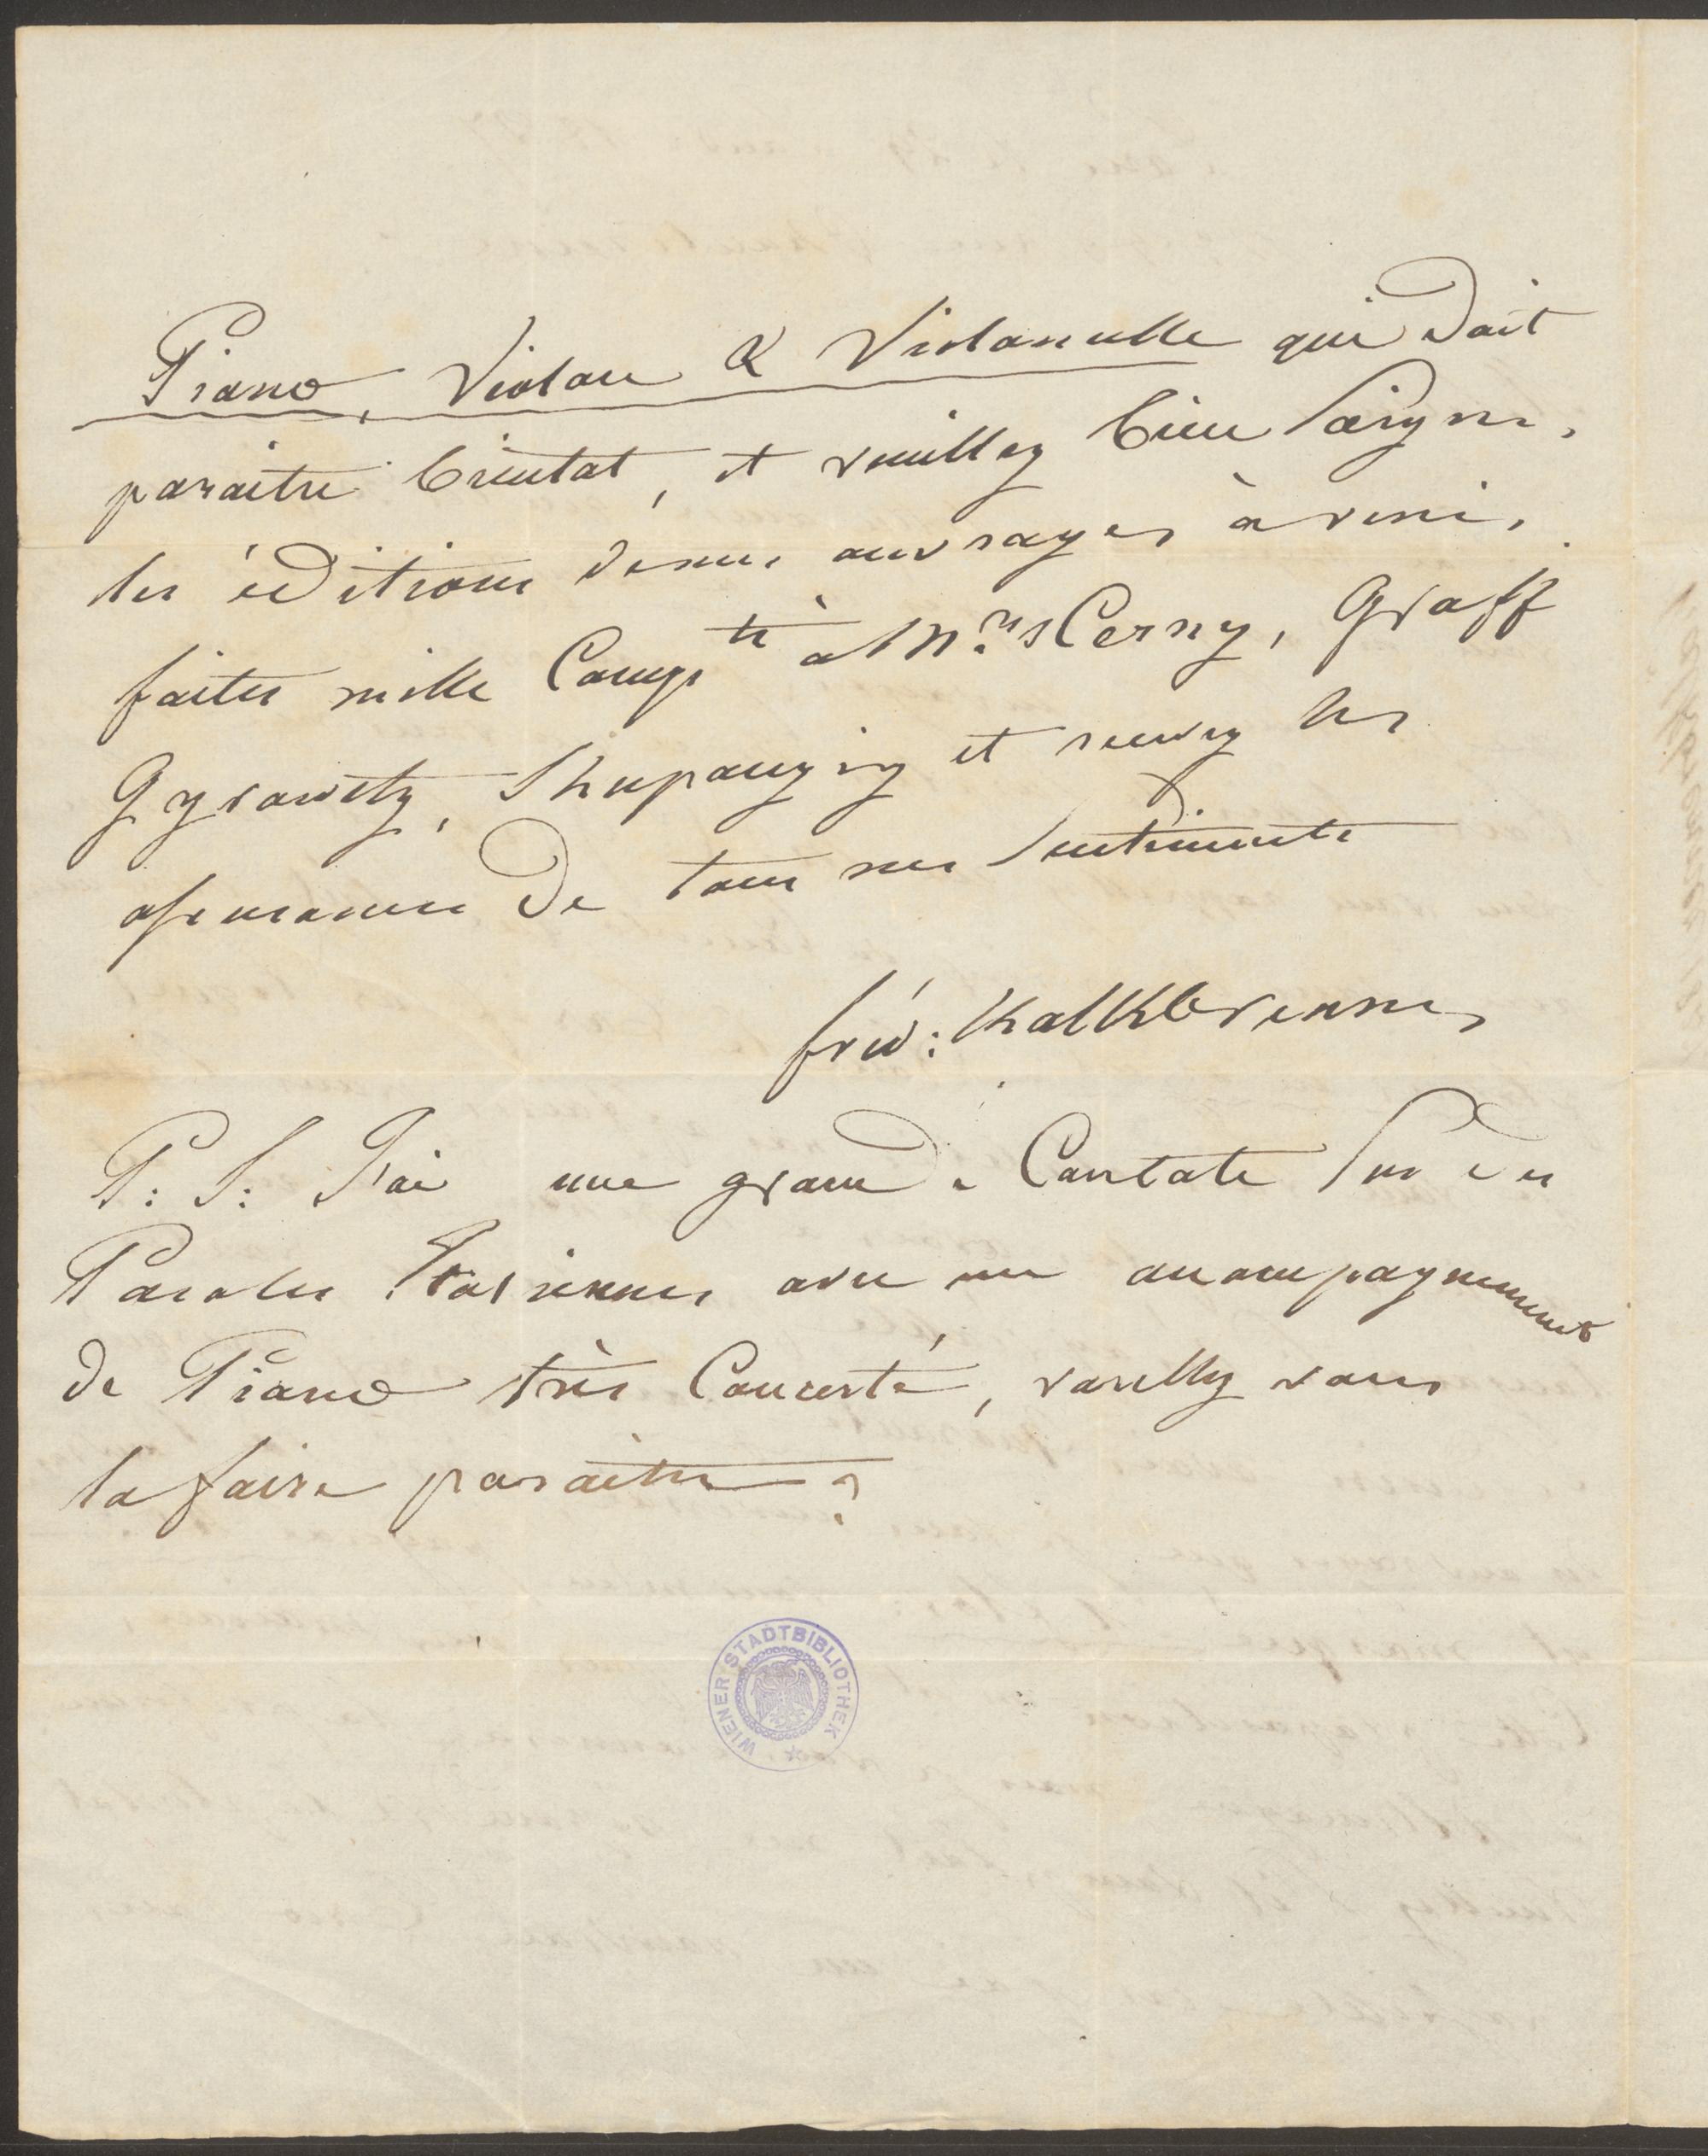 Piano, Violon & Violoncelle qui doit
paraitre bientot, et veuillez bien soigner
les éditions de mes ouvrages à venir.
faites mille Compts à Mrs Cerny, Graff
Gyrowetz, Shupanzig et recevez les
assurances de tous mes sentiments
fréd: Kalkbrenner
P: S: J'ai une grande Cantate sur des
Paroles Italiennes avec un accompagnement
de Piano très Concerté, voullez vous
la faire paraitre?
WIENER STADTBIBLIOTHEK